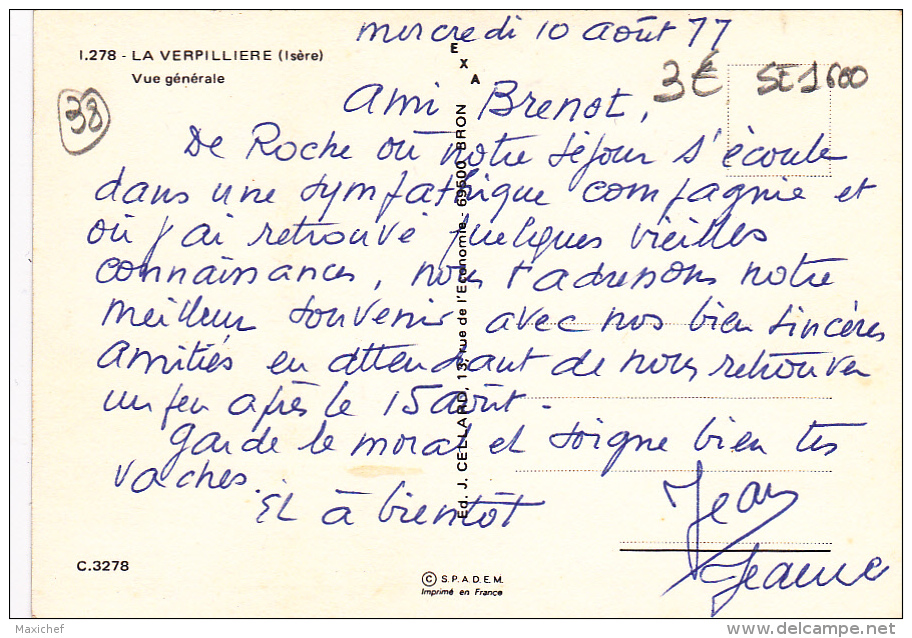 mercredi 10 août 77
I.278 - LA VERPILLIERE (Isère)
Vue générale
EXA
3€
SE1600
38
Ami Brenot,
De Roche où notre séjour s'écoule
dans une sympathique compagnie et
où j'ai retrouvé quelques vieilles
connaissances, nous t'adressons notre
meilleur souvenir avec nos bien sincères
amitiés en attendant de nous retrouver
un peu après le 15 août -
Garde le moral et soigne bien tes
vaches.
Et à bientôt
Jean
Jeanne
Ed. J. CELLARD, 13, rue de l'Economie - 69500 BRON
C.3278
© S.P.A.D.E.M.
Imprimé en France
Maxichef
www.delcampe.net